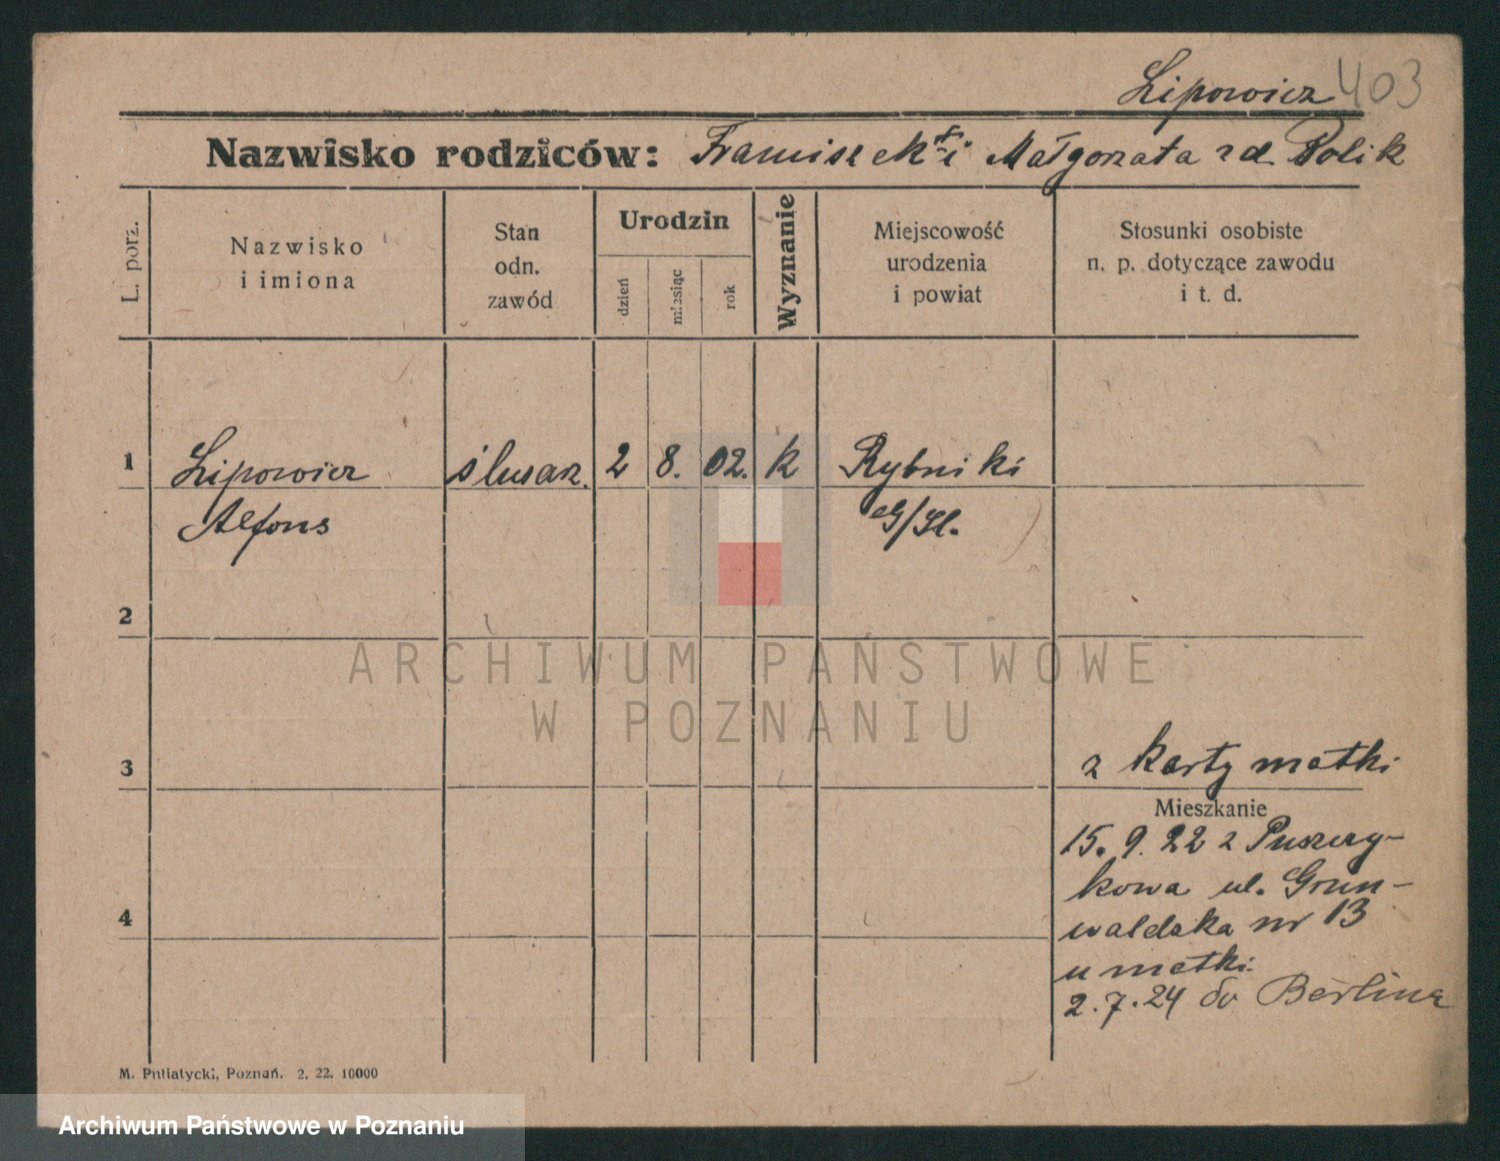 Lipowicz 403
Nazwisko rodziców: Franciszek + i Małgorzata zd. Polik
L. porz.
Nazwisko
i imiona
Stan
odn.
zawód
Urodzin
dzień
miesiąc
rok
Wyznanie
Miejscowość
urodzenia
i powiat
Stosunki osobiste
n. p. dotyczące zawodu
i t. d.
1 Lipowicz ślusarz. 2 8. 02. k Rybniki
Alfons G/Sl.
2
ARCHIWUM PAŃSTWOWE
W POZNANIU
3 z karty matki
Mieszkanie
15. 9. 22 z Puszczy-
kowa ul. Grun-
4 waldzka nr 13
u matki
2.7.24 do Berlina
M. Putiatycki, Poznań. 2. 22. 10000
Archiwum Państwowe w Poznaniu